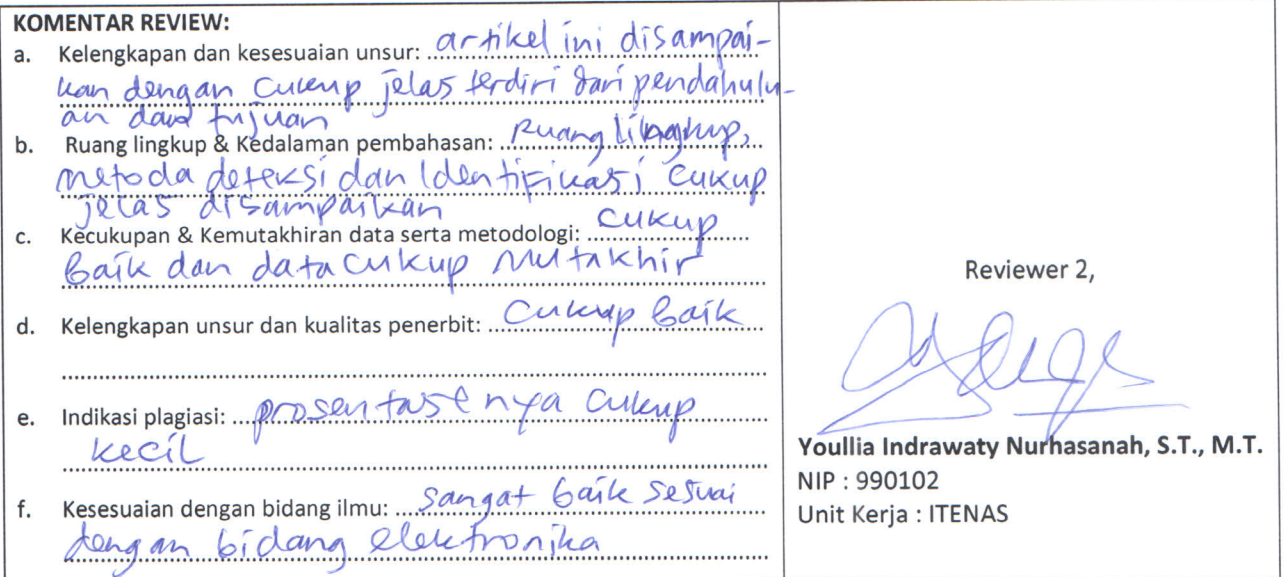 KOMENTAR REVIEW:
a. Kelengkapan dan kesesuaian unsur: artikel ini disampai-
kan dengan cukup jelas terdiri dari pendahulu-
an dan tujuan
b. Ruang lingkup & Kedalaman pembahasan: Ruang lingkup,
metoda deteksi dan Identifikasi cukup
jelas disampaikan
c. Kecukupan & Kemutakhiran data serta metodologi: cukup
baik dan data cukup mutakhir
d. Kelengkapan unsur dan kualitas penerbit: Cukup baik
e. Indikasi plagiasi: prosentasenya cukup
kecil
f. Kesesuaian dengan bidang ilmu: sangat baik sesuai
dengan bidang elektronika
Reviewer 2,
Youllia Indrawaty Nurhasanah, S.T., M.T.
NIP : 990102
Unit Kerja : ITENAS